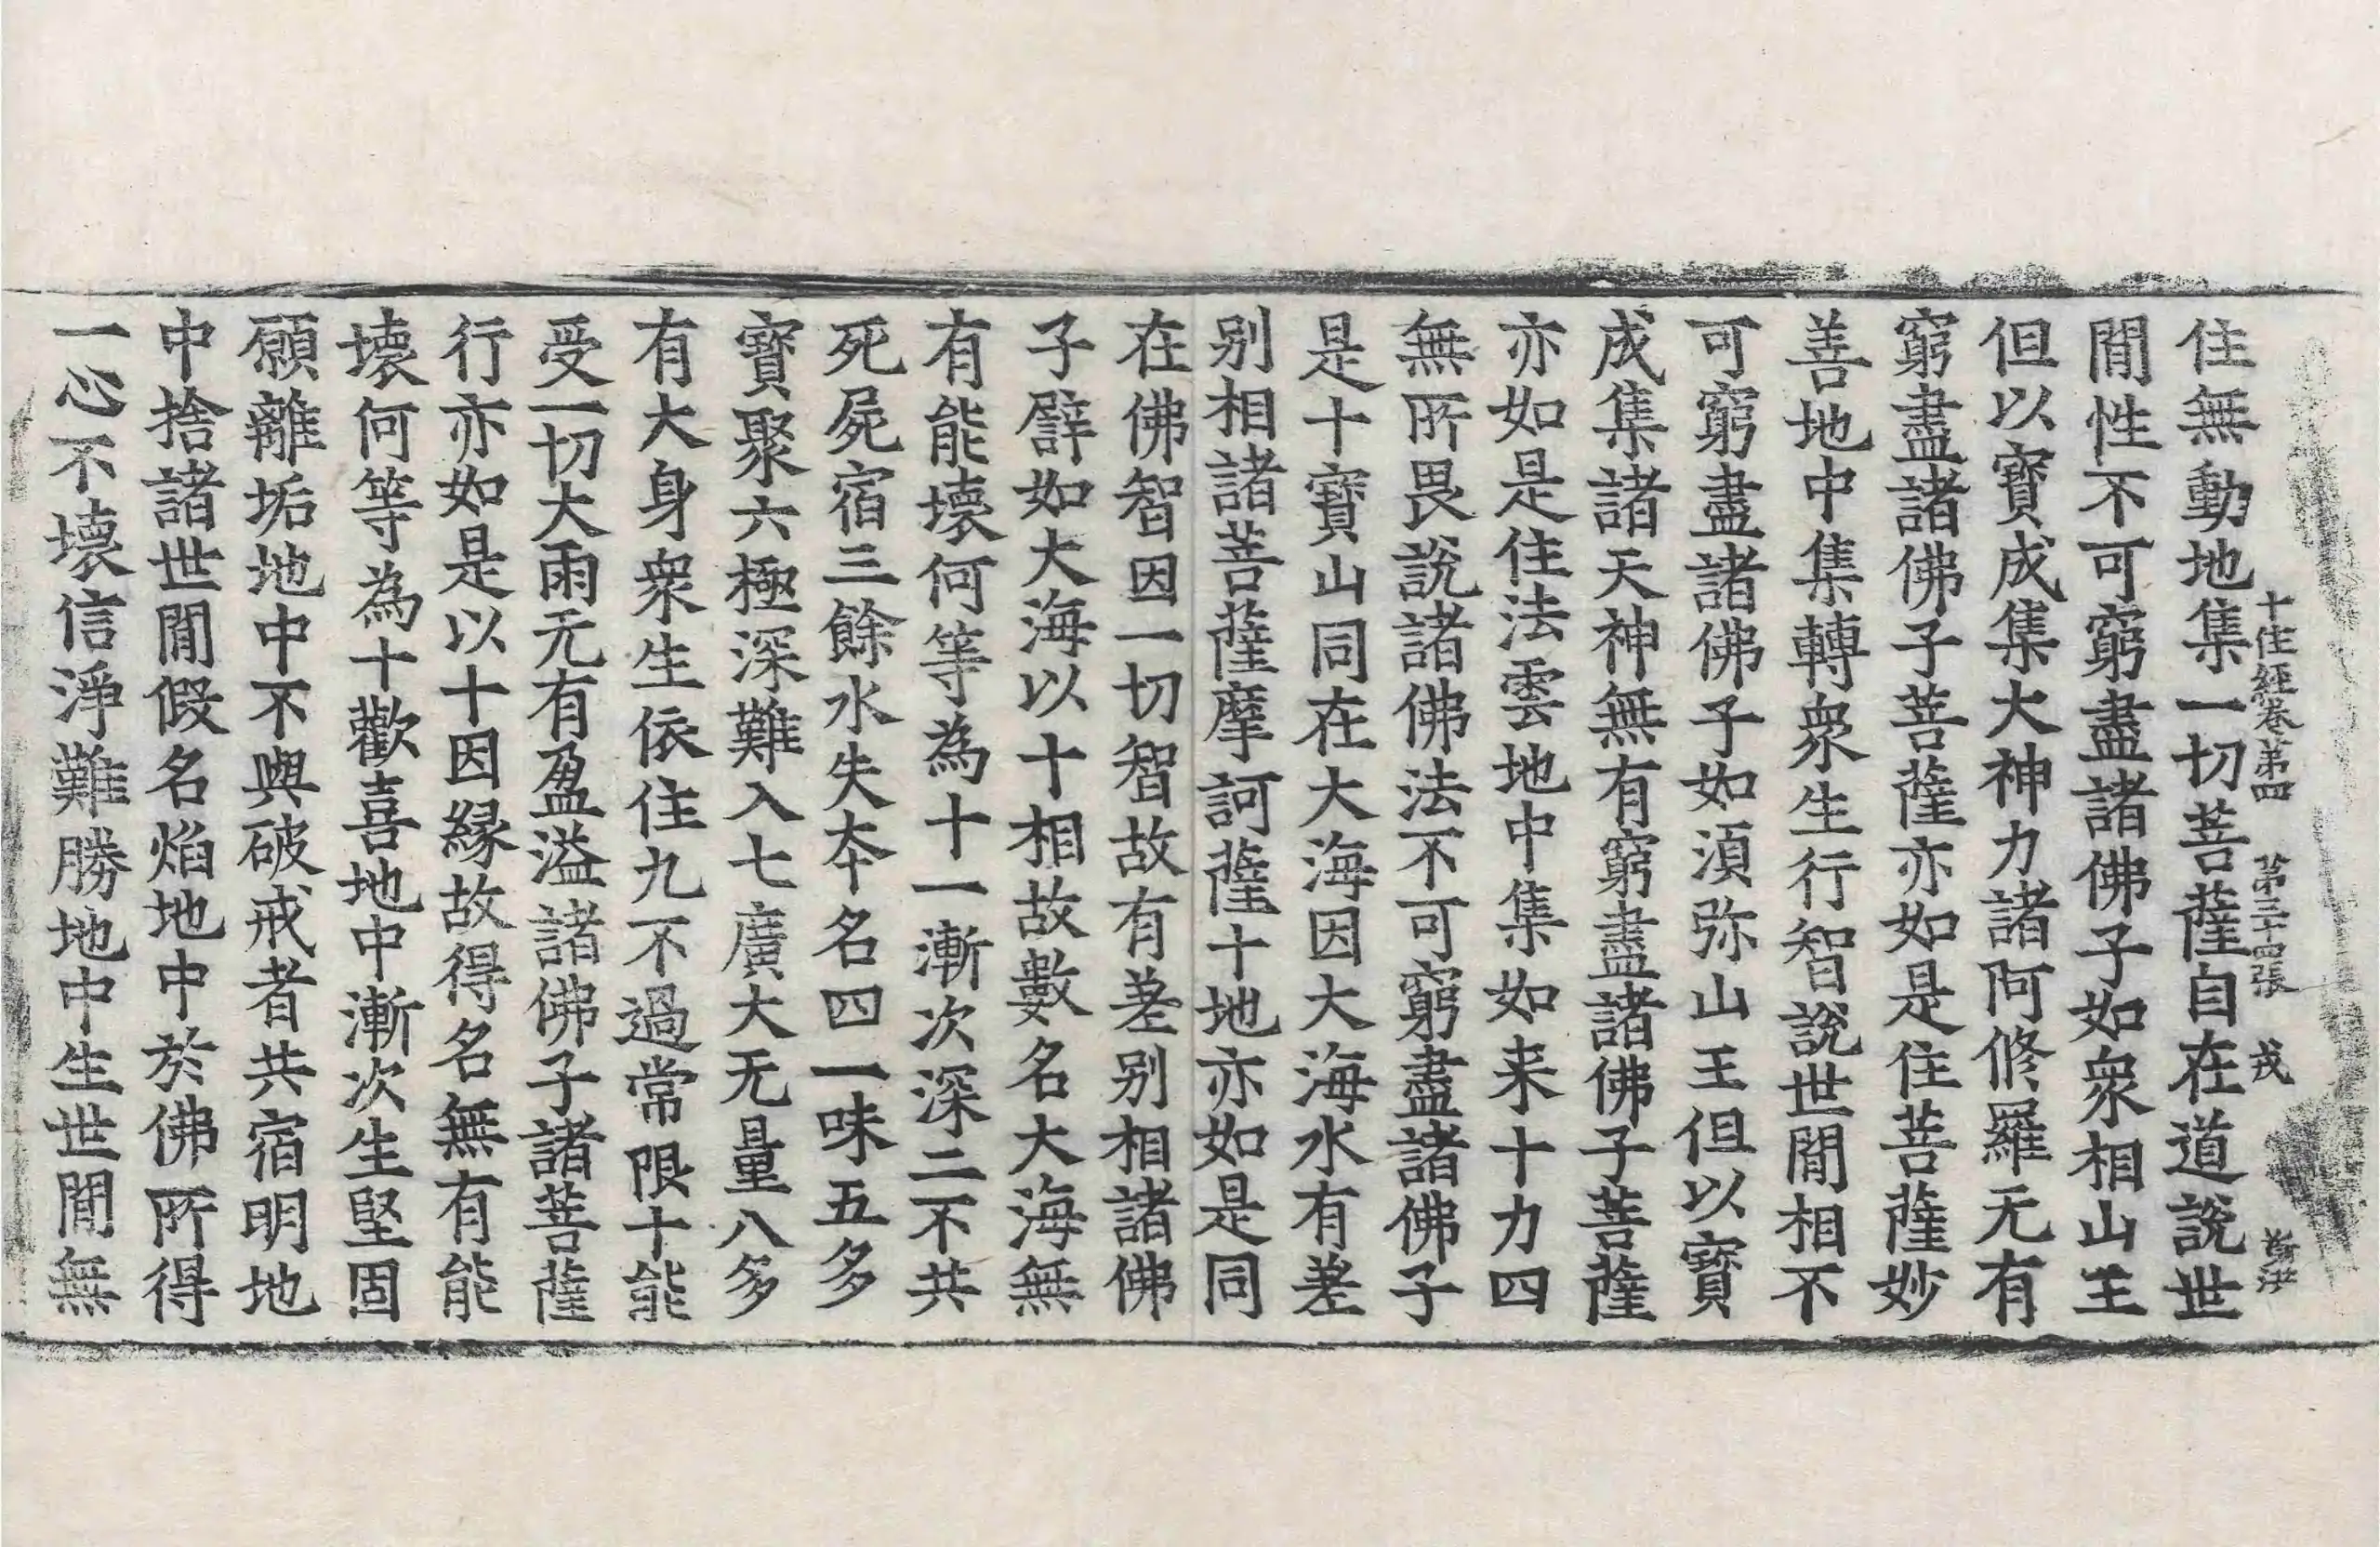 十住經卷第四 第三十四張 戎
住無動地集一切菩薩自在道說世
閒性不可窮盡諸佛子如衆相山王
但以寶成集大神力諸阿修羅无有
窮盡諸佛子菩薩亦如是住菩薩妙
善地中集轉衆生行智說世閒相不
可窮盡諸佛子如湏弥山王但以寶
成集諸天神無有窮盡諸佛子菩薩
亦如是住法雲地中集如来十力四
無所畏說諸佛法不可窮盡諸佛子
是十寶山同在大海因大海水有差
别相諸菩薩摩訶薩十地亦如是同
在佛智因一切智故有差别相諸佛
子譬如大海以十相故數名大海無
有能壞何等為十一漸次深二不共
死屍宿三餘水失夲名四一味五多
寶聚六極深難入七廣大无量八多
有大身衆生依住九不過常限十能
受一切大雨无有盈溢諸佛子諸菩薩
行亦如是以十因緣故得名無有能
壞何等為十歡喜地中漸次生堅固
願離垢地中不與破戒者共宿明地
中捨諸世閒假名焰地中於佛所得
一心不壞信淨難勝地中生世閒無